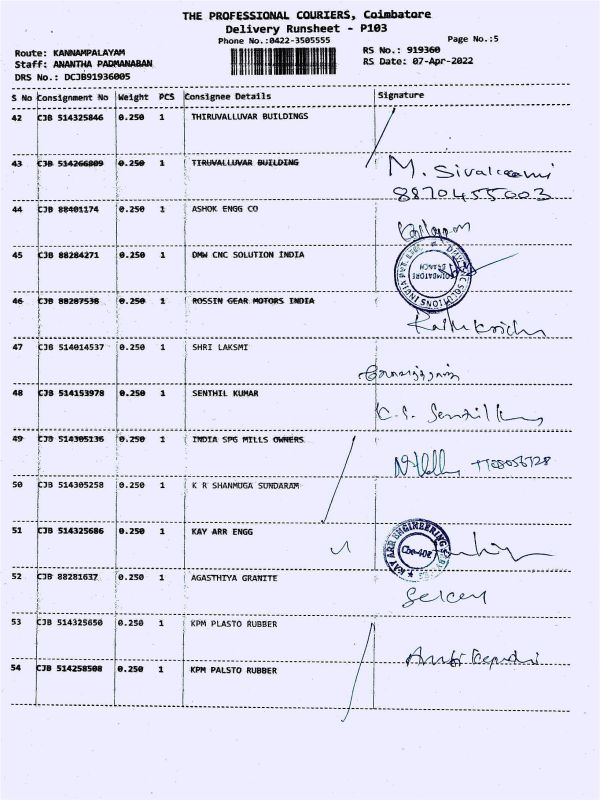 THE PROFESSIONAL COURIERS, Coimbatore
Delivery Runsheet - P103
Phone No.:0422-3505555
Page No.:5
Route: KANNAMPALAYAM
RS No.: 919360
Staff: ANANTHA PADMANABAN
RS Date: 07-Apr-2022
DRS No.: DCJB91936005
S No Consignment No Weight PCS Consignee Details Signature
42 CJB 514325846 0.250 1 THIRUVALLUVAR BUILDINGS
43 CJB 514266809 0.250 1 TIRUVALLUVAR BUILDING
M. Sivalcoomi
8870455003
44 CJB 88401174 0.250 1 ASHOK ENGG CO
45 CJB 88284271 0.250 1 DMW CNC SOLUTION INDIA
COIMBATORE BRANCH
46 CJB 88287538 0.250 1 ROSSIN GEAR MOTORS INDIA
47 CJB 514014537 0.250 1 SHRI LAKSMI
48 CJB 514153978 0.250 1 SENTHIL KUMAR
49 CJB 514305136 0.250 1 INDIA SPG MILLS OWNERS
50 CJB 514305258 0.250 1 K R SHANMUGA SUNDARAM
51 CJB 514325686 0.250 1 KAY ARR ENGG
KAY ARR ENGINEERING
52 CJB 88281637 0.250 1 AGASTHIYA GRANITE
53 CJB 514325650 0.250 1 KPM PLASTO RUBBER
54 CJB 514258508 0.250 1 KPM PALSTO RUBBER